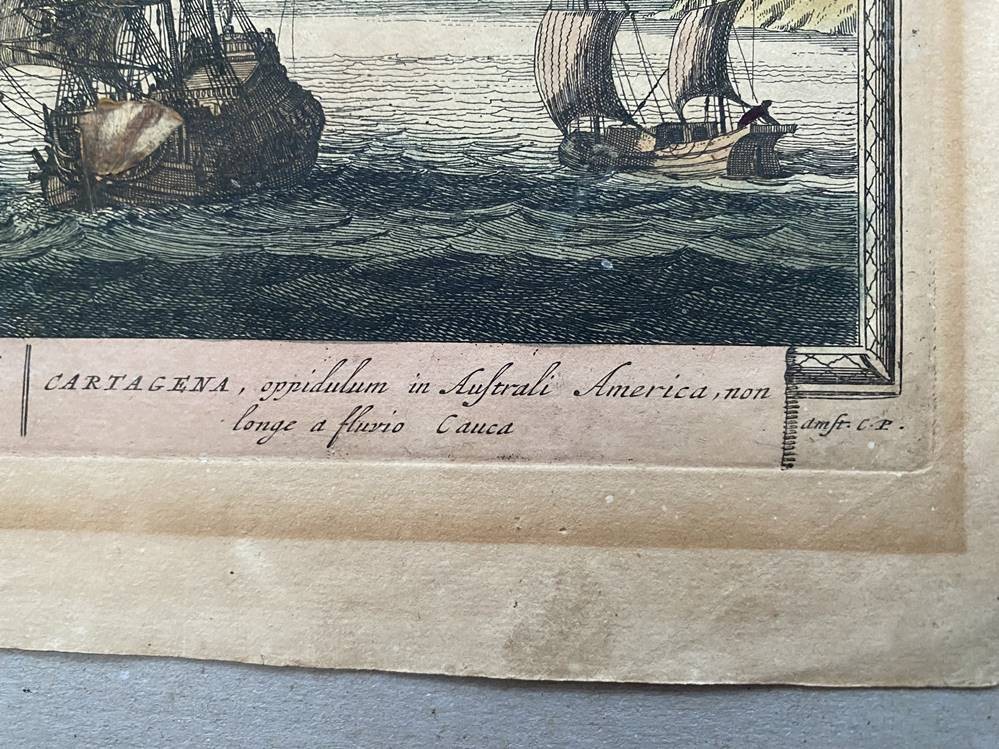 CARTAGENA, oppidulum in Auſtrali America, non
longe a fluvio Cauca
amſt. C. P.